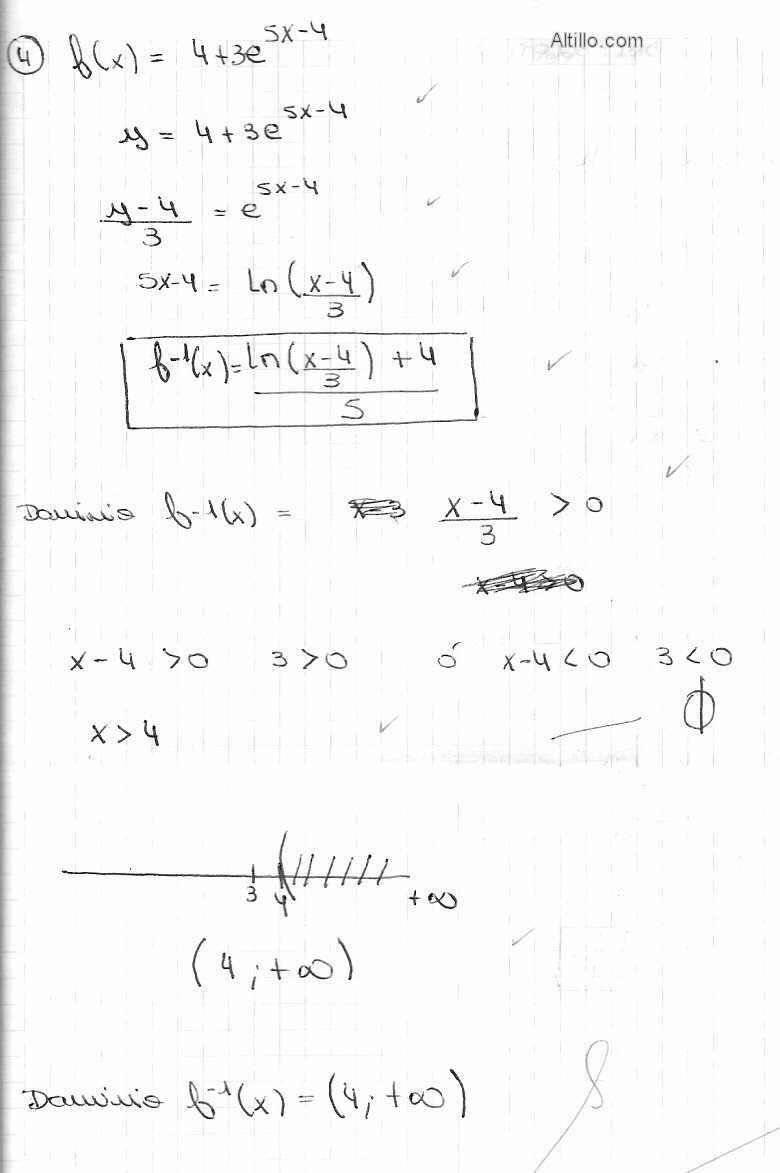 Altillo.com
④ f(x) = 4+3e^(5x-4)
y = 4+3e^(5x-4)
(y-4)/3 = e^(5x-4)
5x-4 = Ln((x-4)/3)
f^-1(x) = (Ln((x-4)/3) + 4)/5
Dominio f^-1(x) = (x-4)/3 > 0
x-4 > 0 3 > 0 ó x-4 < 0 3 < 0
x > 4 ϕ
3 4 +∞
(4 ; +∞)
Dominio f^-1(x) = (4; +∞)